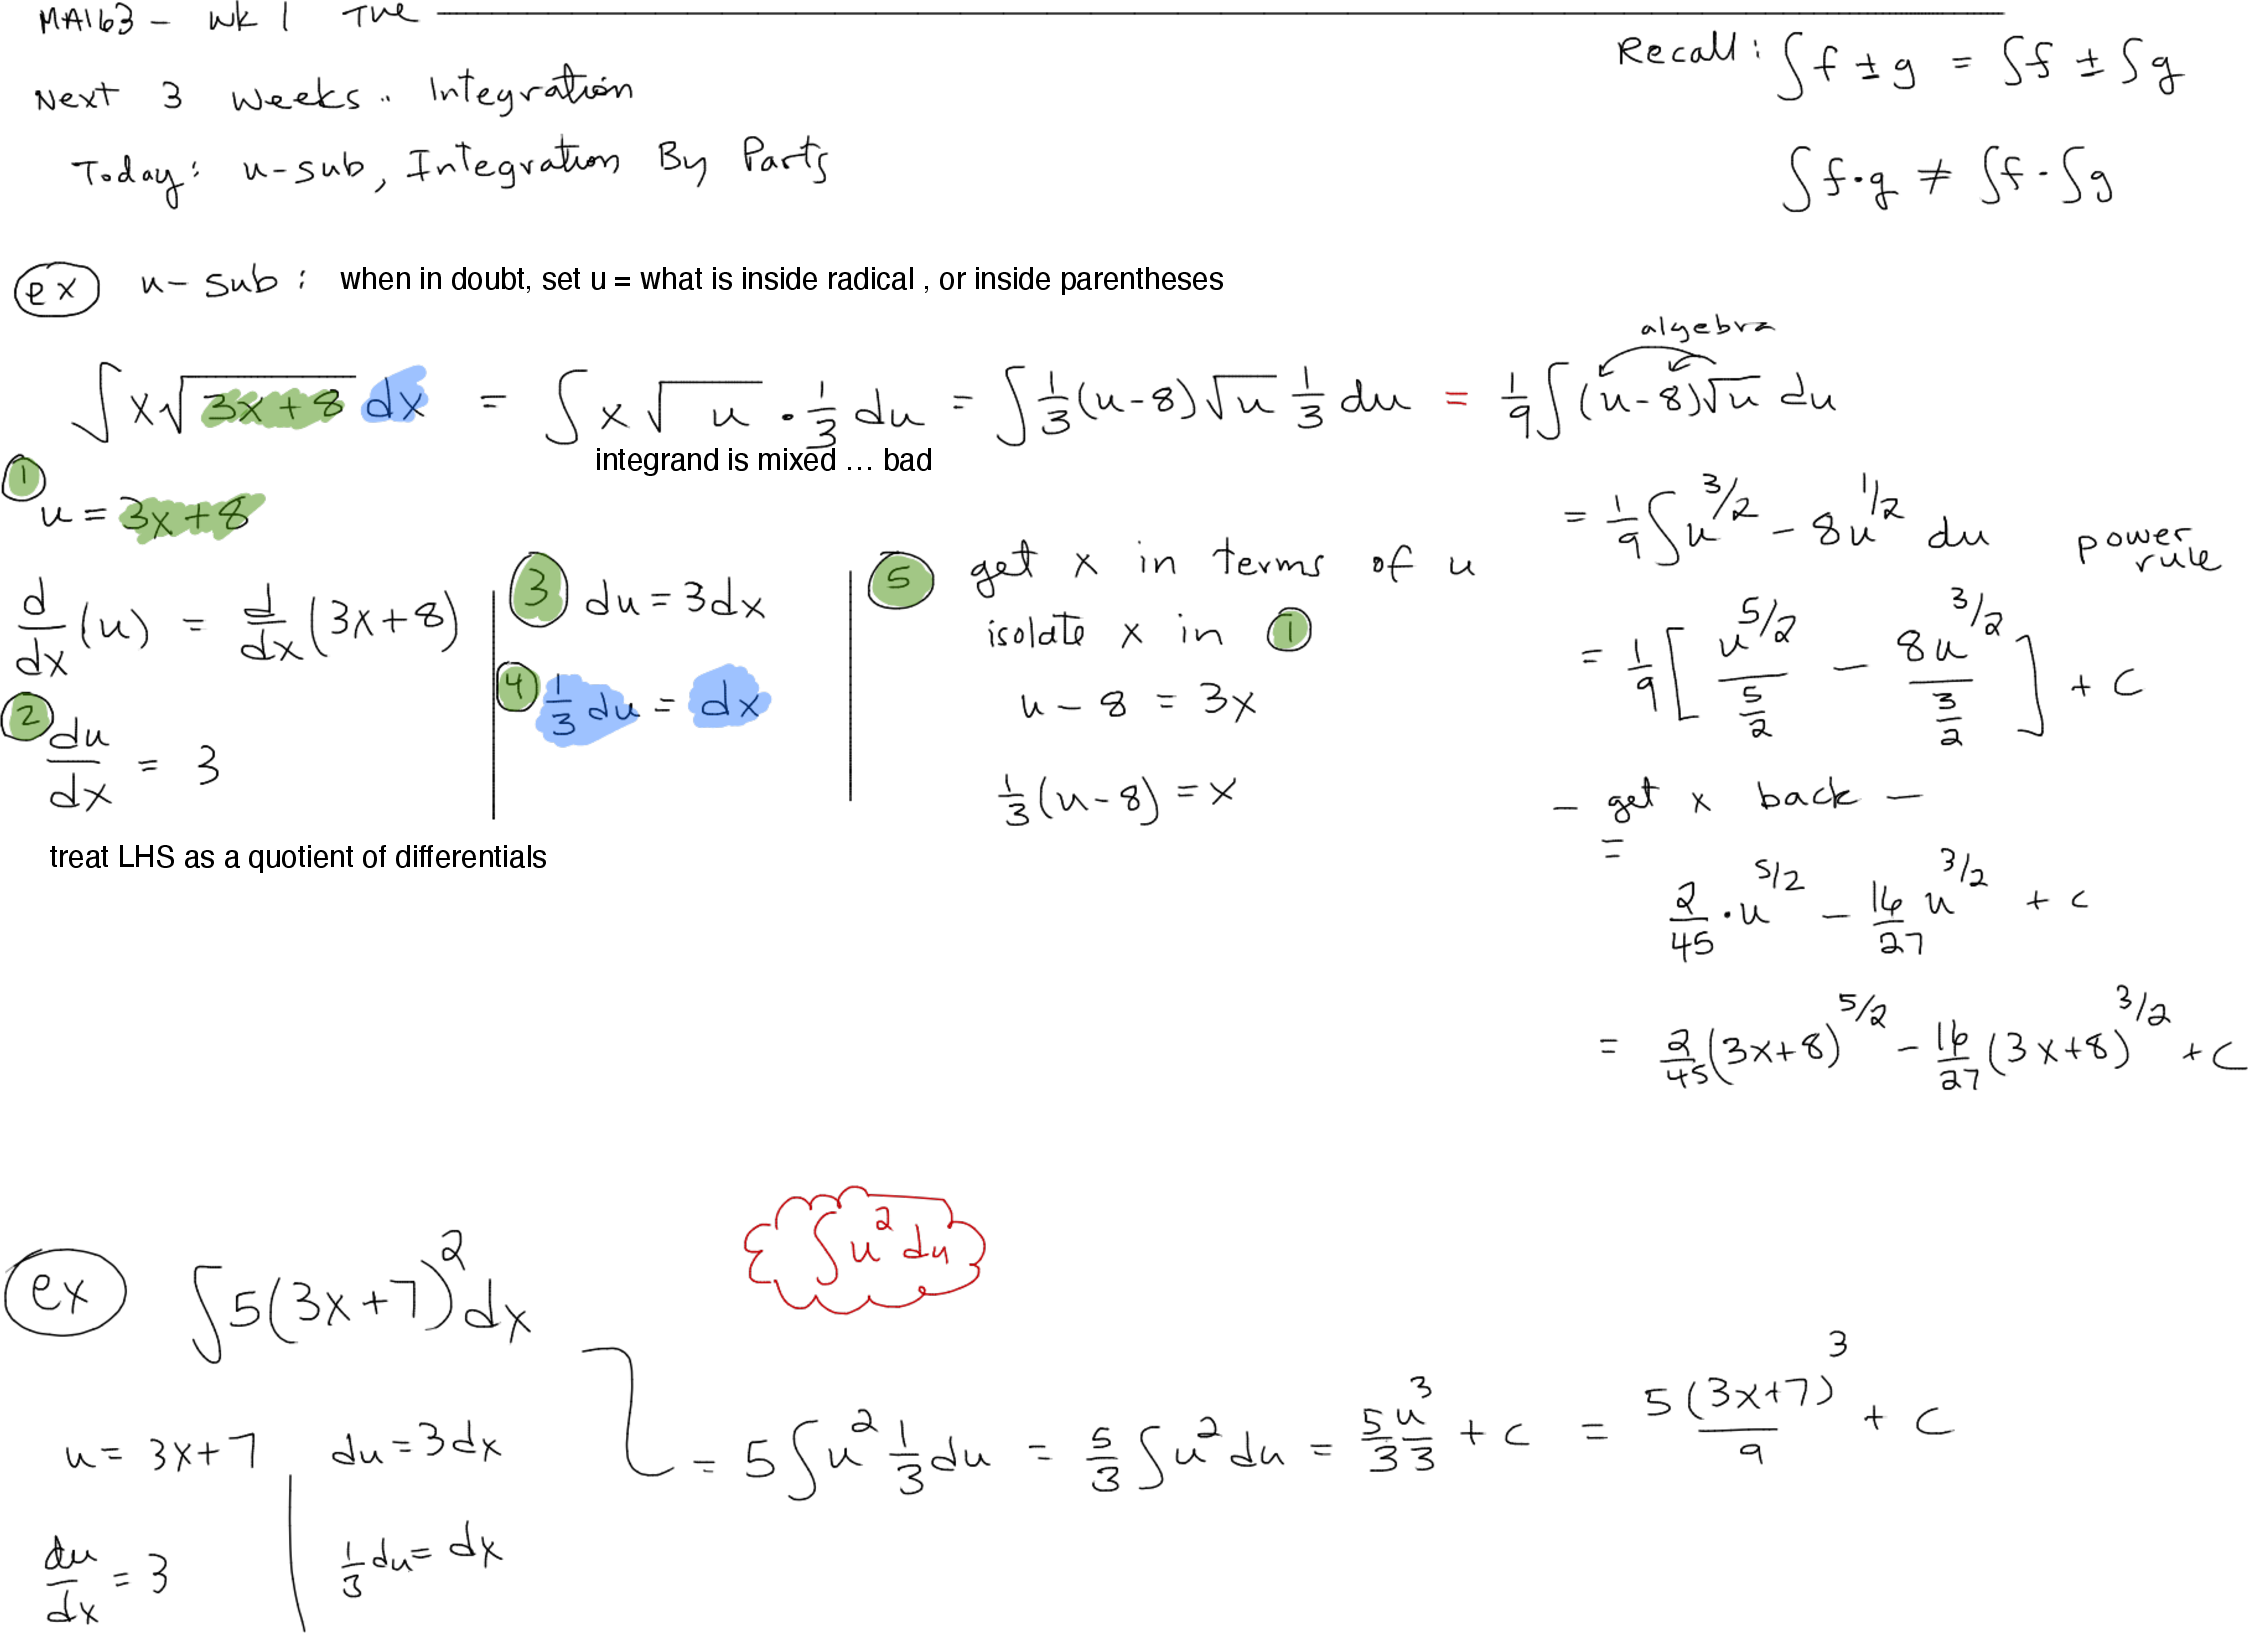 MA163 - Wk 1 Tue
Next 3 weeks .. Integration
Today: u-sub, Integration By Parts
Recall: ∫f ± g = ∫f ± ∫g
∫f·g ≠ ∫f · ∫g
ex u-sub: when in doubt, set u = what is inside radical , or inside parentheses
algebra
∫x√(3x+8) dx = ∫x√u · 1/3 du = ∫1/3(u-8)√u 1/3 du = 1/9∫(u-8)√u du
integrand is mixed ... bad
1
u = 3x+8
d/dx(u) = d/dx(3x+8)
2
du/dx = 3
treat LHS as a quotient of differentials
3 du = 3dx
4 1/3 du = dx
5 get x in terms of u
isolate x in 1
u - 8 = 3x
1/3(u-8) = x
= 1/9∫u^3/2 - 8u^1/2 du power rule
= 1/9[u^5/2/(5/2) - 8u^3/2/(3/2)] + c
- get x back -
=
2/45 · u^5/2 - 16/27 u^3/2 + c
= 2/45(3x+8)^5/2 - 16/27(3x+8)^3/2 + c
ex ∫5(3x+7)^2 dx
∫u^2 du
u = 3x+7
du/dx = 3
du = 3dx
1/3 du = dx
= 5∫u^2 1/3 du = 5/3∫u^2 du = 5/3 u^3/3 + c = 5(3x+7)^3/9 + c